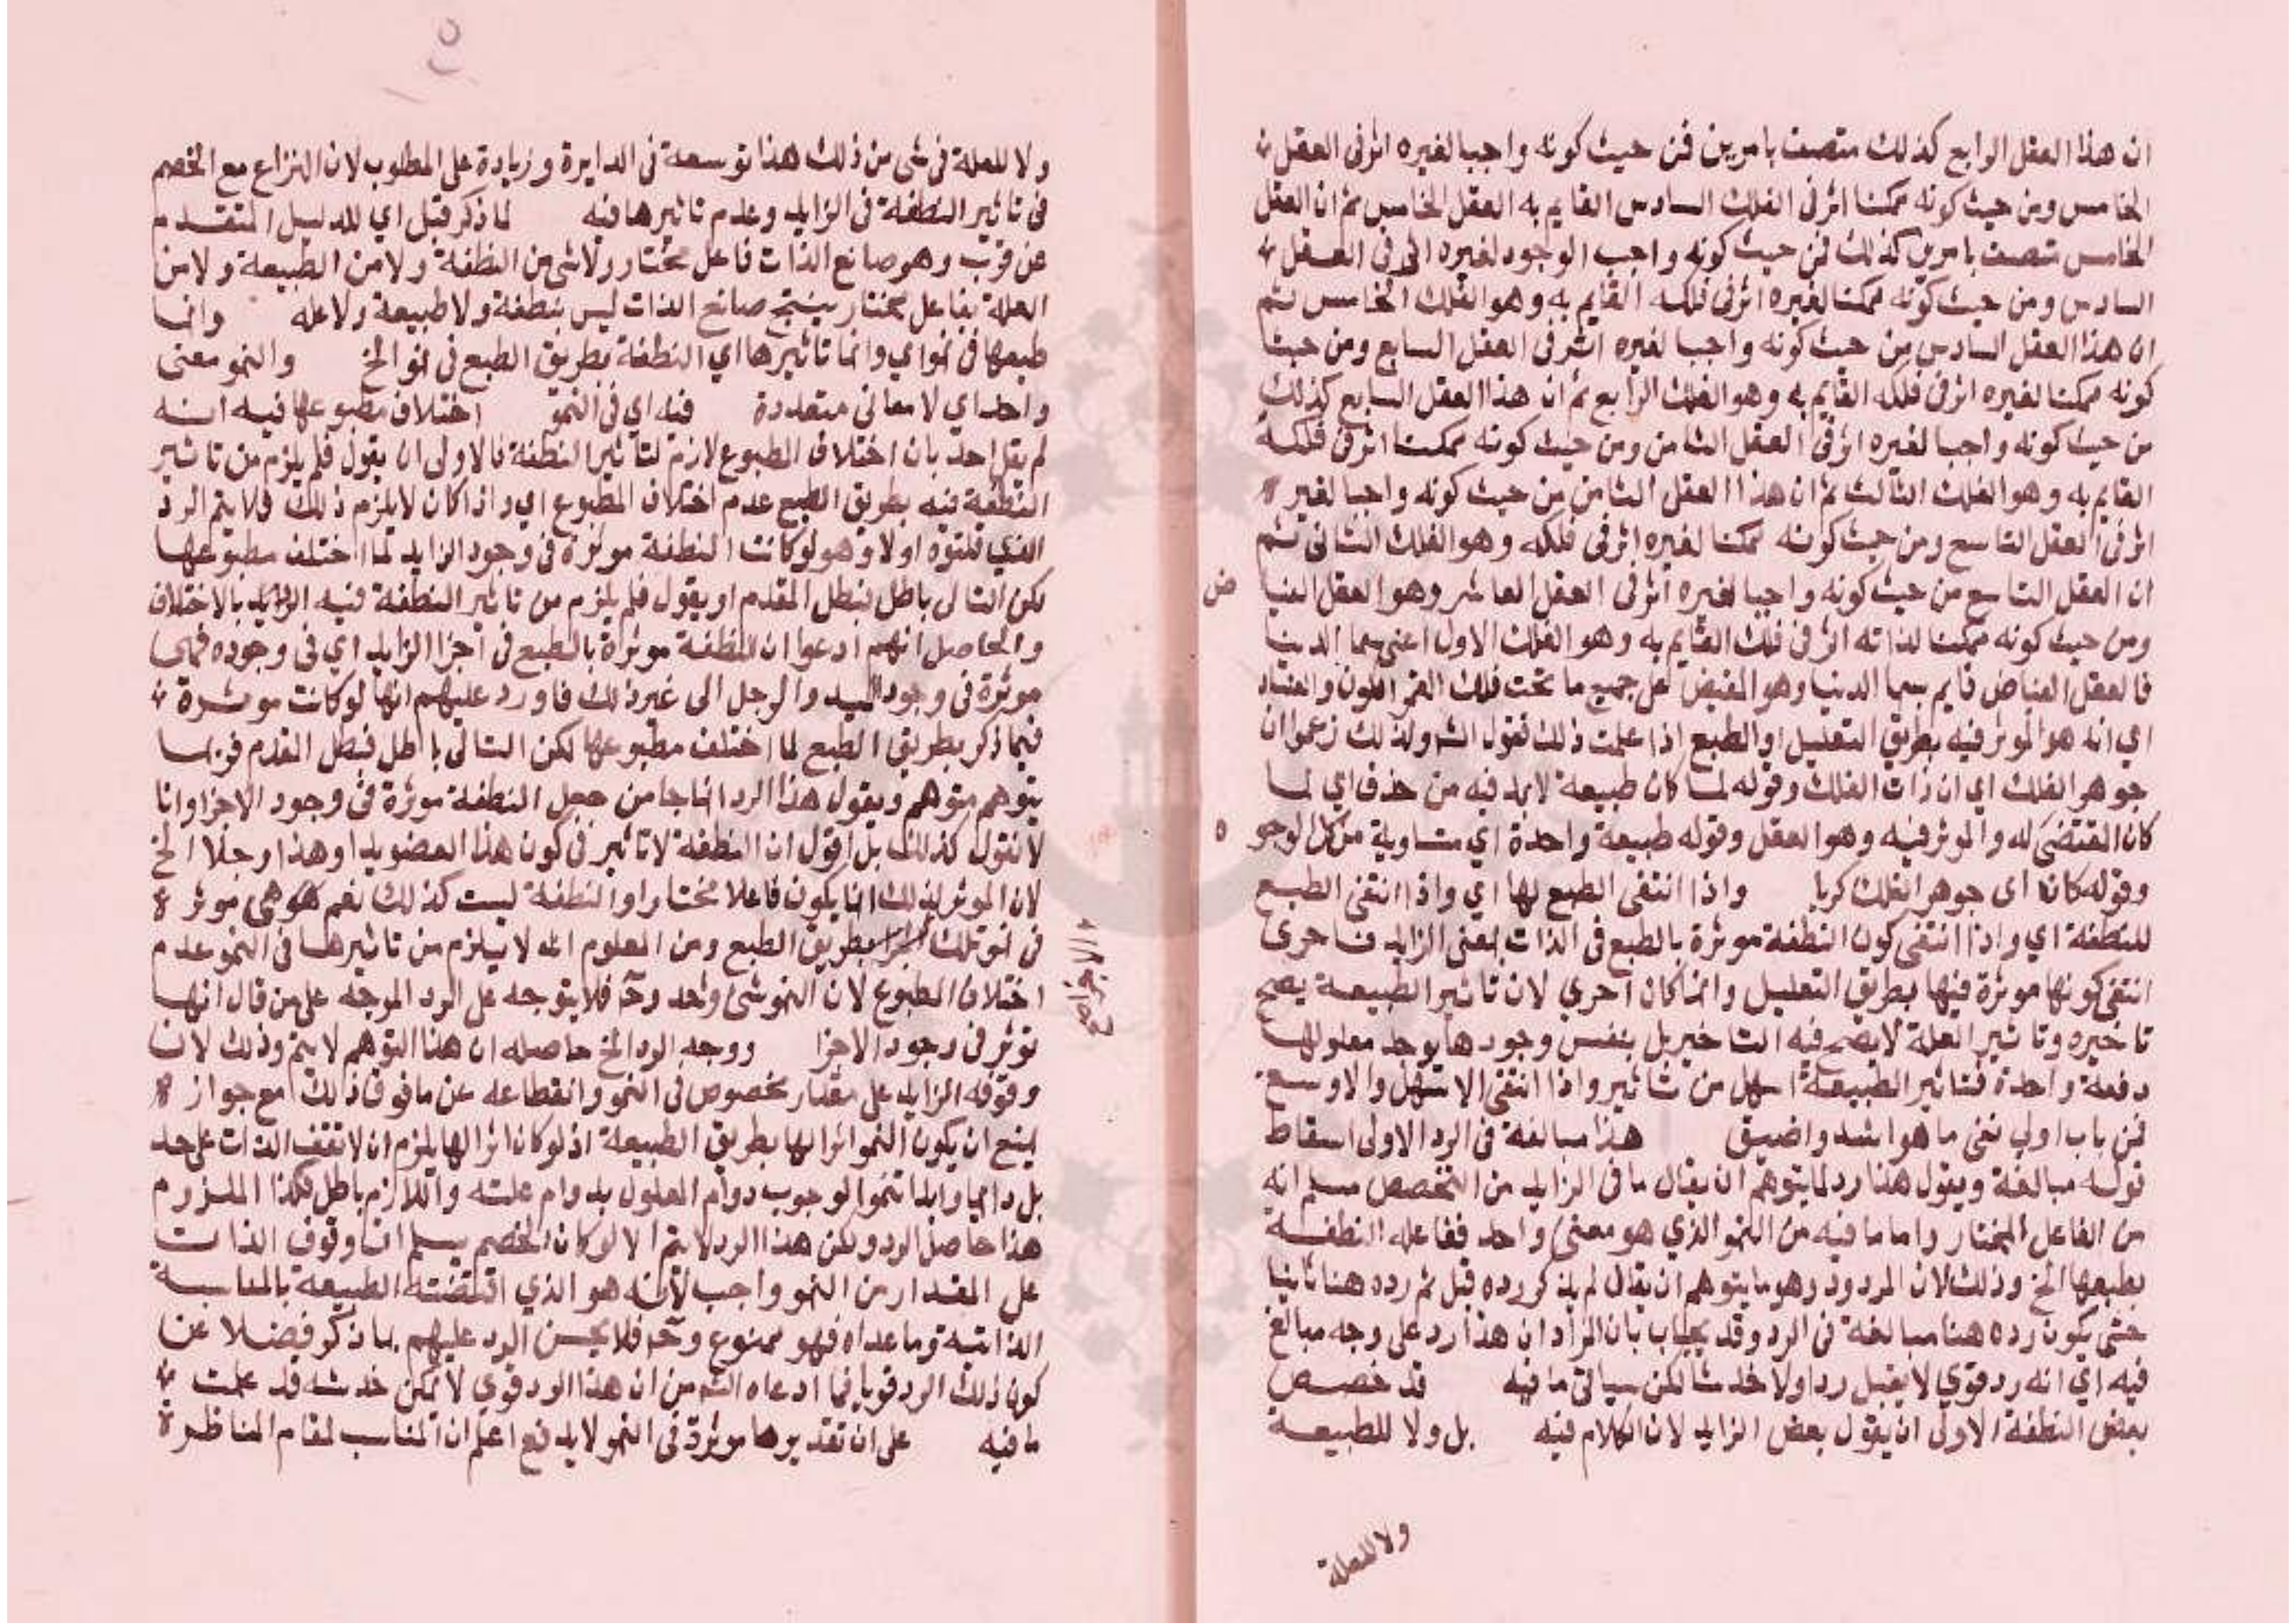 ان هذا العقل الرابع كذلك متصف بامرين فمن حيث كونه واجبا لغيره اثر في العقل
الخامس ومن حيث كونه ممكنا اثر في الفلك السادس القايم به العقل الخامس ثم ان العقل
الخامس متصف بامرين كذلك فمن حيث كونه واجب الوجود لغيره اثر في العقل
السادس ومن حيث كونه ممكنا لغيره اثر في فلكه القايم به وهو الفلك الخامس ثم
ان هذا العقل السادس من حيث كونه واجبا لغيره اثر في العقل السابع ومن حيث
كونه ممكنا لغيره اثر في فلكه القايم به وهو الفلك الرابع ثم ان هذا العقل السابع كذلك
من حيث كونه واجبا لغيره اثر في العقل الثامن ومن حيث كونه ممكنا اثر في فلكه
القايم به وهو الفلك الثالث ثم ان هذا العقل الثامن من حيث كونه واجبا لغيره
اثر في العقل التاسع ومن حيث كونه ممكنا لغيره اثر في فلكه وهو الفلك الثاني ثم
ان العقل التاسع من حيث كونه واجبا لغيره اثر في العقل العاشر وهو العقل الفيا ض
ومن حيث كونه ممكنا لذاته اثر في فلك القايم به وهو الفلك الاول اعني سما الدنيا
فالعقل الفياض قايم بسما الدنيا وهو المفيض على جميع ما تحت فلك القمر الكون والفساد
اي انه هو الموثر فيه بطريق التعليل او الطبع اذا علمت ذلك فقول الش ولذلك زعموا ان
جوهر الفلك اي ان ذات الفلك وقوله لما كان طبيعة لابد فيه من حذف اي لما
كان المقتضى له والموثر فيه وهو العقل وقوله طبيعة واحدة اي متساوية من كل لوجو ه
وقوله كان اى جوهر الفلك كريا واذا انتفى الطبع لها اي واذا انتفى الطبع
للنطفة اي واذا انتفى كون النطفة موثرة بالطبع في الذات بمعنى الزايد فاحرى
انتفى كونها موثرة فيها بطريق التعليل وانما كان احري لان تاثير الطبيعة يصح
تاخيره وتاثير العلة لا يصح فيه التاخير بل بنفس وجودها يوجد معلولها
دفعة واحدة فتاثير الطبيعة اسهل من تاثير واذا انتفى الاسهل والاوسع
فمن باب اولي نفي ما هو اشد واضيق هذا مبالغة في الرد الاولى اسقاط
قوله مبالغة ويقول هنا رد لما يتوهم ان يقال ما في الزايد من التخصص مسلم انه
من الفاعل المختار واما ما فيه من النمو الذي هو معنى واحد ففاعله النطفة
بطبعها الخ وذلك لان المردود وهو ما يتوهم ان يقال لم يذكر رده قبل ثم رده هنا ثانيا
حتى يكون رده هنا مبالغة في الرد وقد يجاب بان المراد ان هذا رد على وجه مبالغ
فيه اي انه رد قوي لا يقبل ردا ولا خدشا لكن سياتي ما فيه قد خصص
بعض النطفة الاولى ان يقول بعض الزايد لان الكلام فيه بل ولا للطبيعة
ولا للعلة
ولا للعلة في شى من ذلك هذا توسعة في الدايرة وزيادة على المطلوب لان النزاع مع الخصم
في تاثير النطفة في الزايد وعدم تاثيرها فيه لما ذكر قبل اي للدليل المتقدم
عن قرب وهو صانع الذات فاعل مختار ولا شى من النطفة ولا من الطبيعة ولا من
العلة بفاعل مختار ينتج صانع الذات ليس بنطفة ولا طبيعة ولا عله وانما
طبعها في نمو اي وانما تاثيرها اي النطفة بطريق الطبع في نمو الخ والنمو معنى
واحد اي لا معاني متعددة فيه اي في النمو اختلاف مطبوعها فيه انه
لم يقل احد بان اختلاف المطبوع لازم لتاثير النطفة فالاولى ان يقول فلم يلزم من تاثير
النطفة فيه بطريق الطبع عدم اختلاف المطبوع اي واذا كان لا يلزم ذلك فلا يتم الرد
الذي قلتوه اولا وهو لو كانت النطفة موثرة في وجود الزايد لما اختلف مطبوعها
لكن التالى باطل فبطل المقدم او يقول فلم يلزم من تاثير النطفة فيه الزايد بالاختلاف
والحاصل انهم ادعوا ان النطفة موثرة بالطبع في اجزا الزايد اي في وجوده فهى
موثرة في وجود اليد والرجل الى غير ذلك فاورد عليهم انها لو كانت موثرة
فيما ذكر بطريق الطبع لما اختلف مطبوعها لكن التالى باطل فبطل المقدم فربما
يتوهم متوهم ويقول هذا الرد انما جا من جعل النطفة موثرة في وجود الاجزا وانا
لا نقول كذلك بل اقول ان النطفة لا تاثير في كون هذا العضو يدا وهذا رجلا الخ
لان الموثر لذلك انما يكون فاعلا مختارا والنطفة ليست كذلك نعم هى موثرة
في نمو تلك بطريق الطبع ومن المعلوم انه لا يلزم من تاثيرها في النمو عدم
اختلاف المطبوع لان النمو شئ واحد وح فلا يتوجه على الرد الموجه على من قال انها
توثر في وجود الاجزا ووجه الرد الخ حاصله ان هذا التوهم لا يتم وذلك لان
وقوف الزايد على مقدار مخصوص في النمو وانقطاعه عن ما فوق ذلك مع جوازه
يمنع ان يكون النمو اثرا لها بطريق الطبيعة اذ لو كان اثرا لها يلزم ان لا تقف الذات على حد
بل دايما وابدا تنمو لوجوب دوام المعلول بدوام علته واللازم باطل فكذا الملزوم
هذا حاصل الرد ولكن هذا الرد لا يتم الا لو كان الخصم يسلم ان وقوف الذات
على المقدار من النمو واجب لانه هو الذي اقتضته الطبيعة بالمناسبة
الذاتية وما عداه فهو ممنوع وح فلا يحسن الرد عليهم بما ذكر فيضلا عن
كون ذلك الرد قويا فما ادعاه الش من ان هذا الرد قوي لا يمكن خدشه قد علمت
ما فيه على ان تقديرها موثرة في النمو لا يدفع اعلم ان المناسب لمقام المناظرة